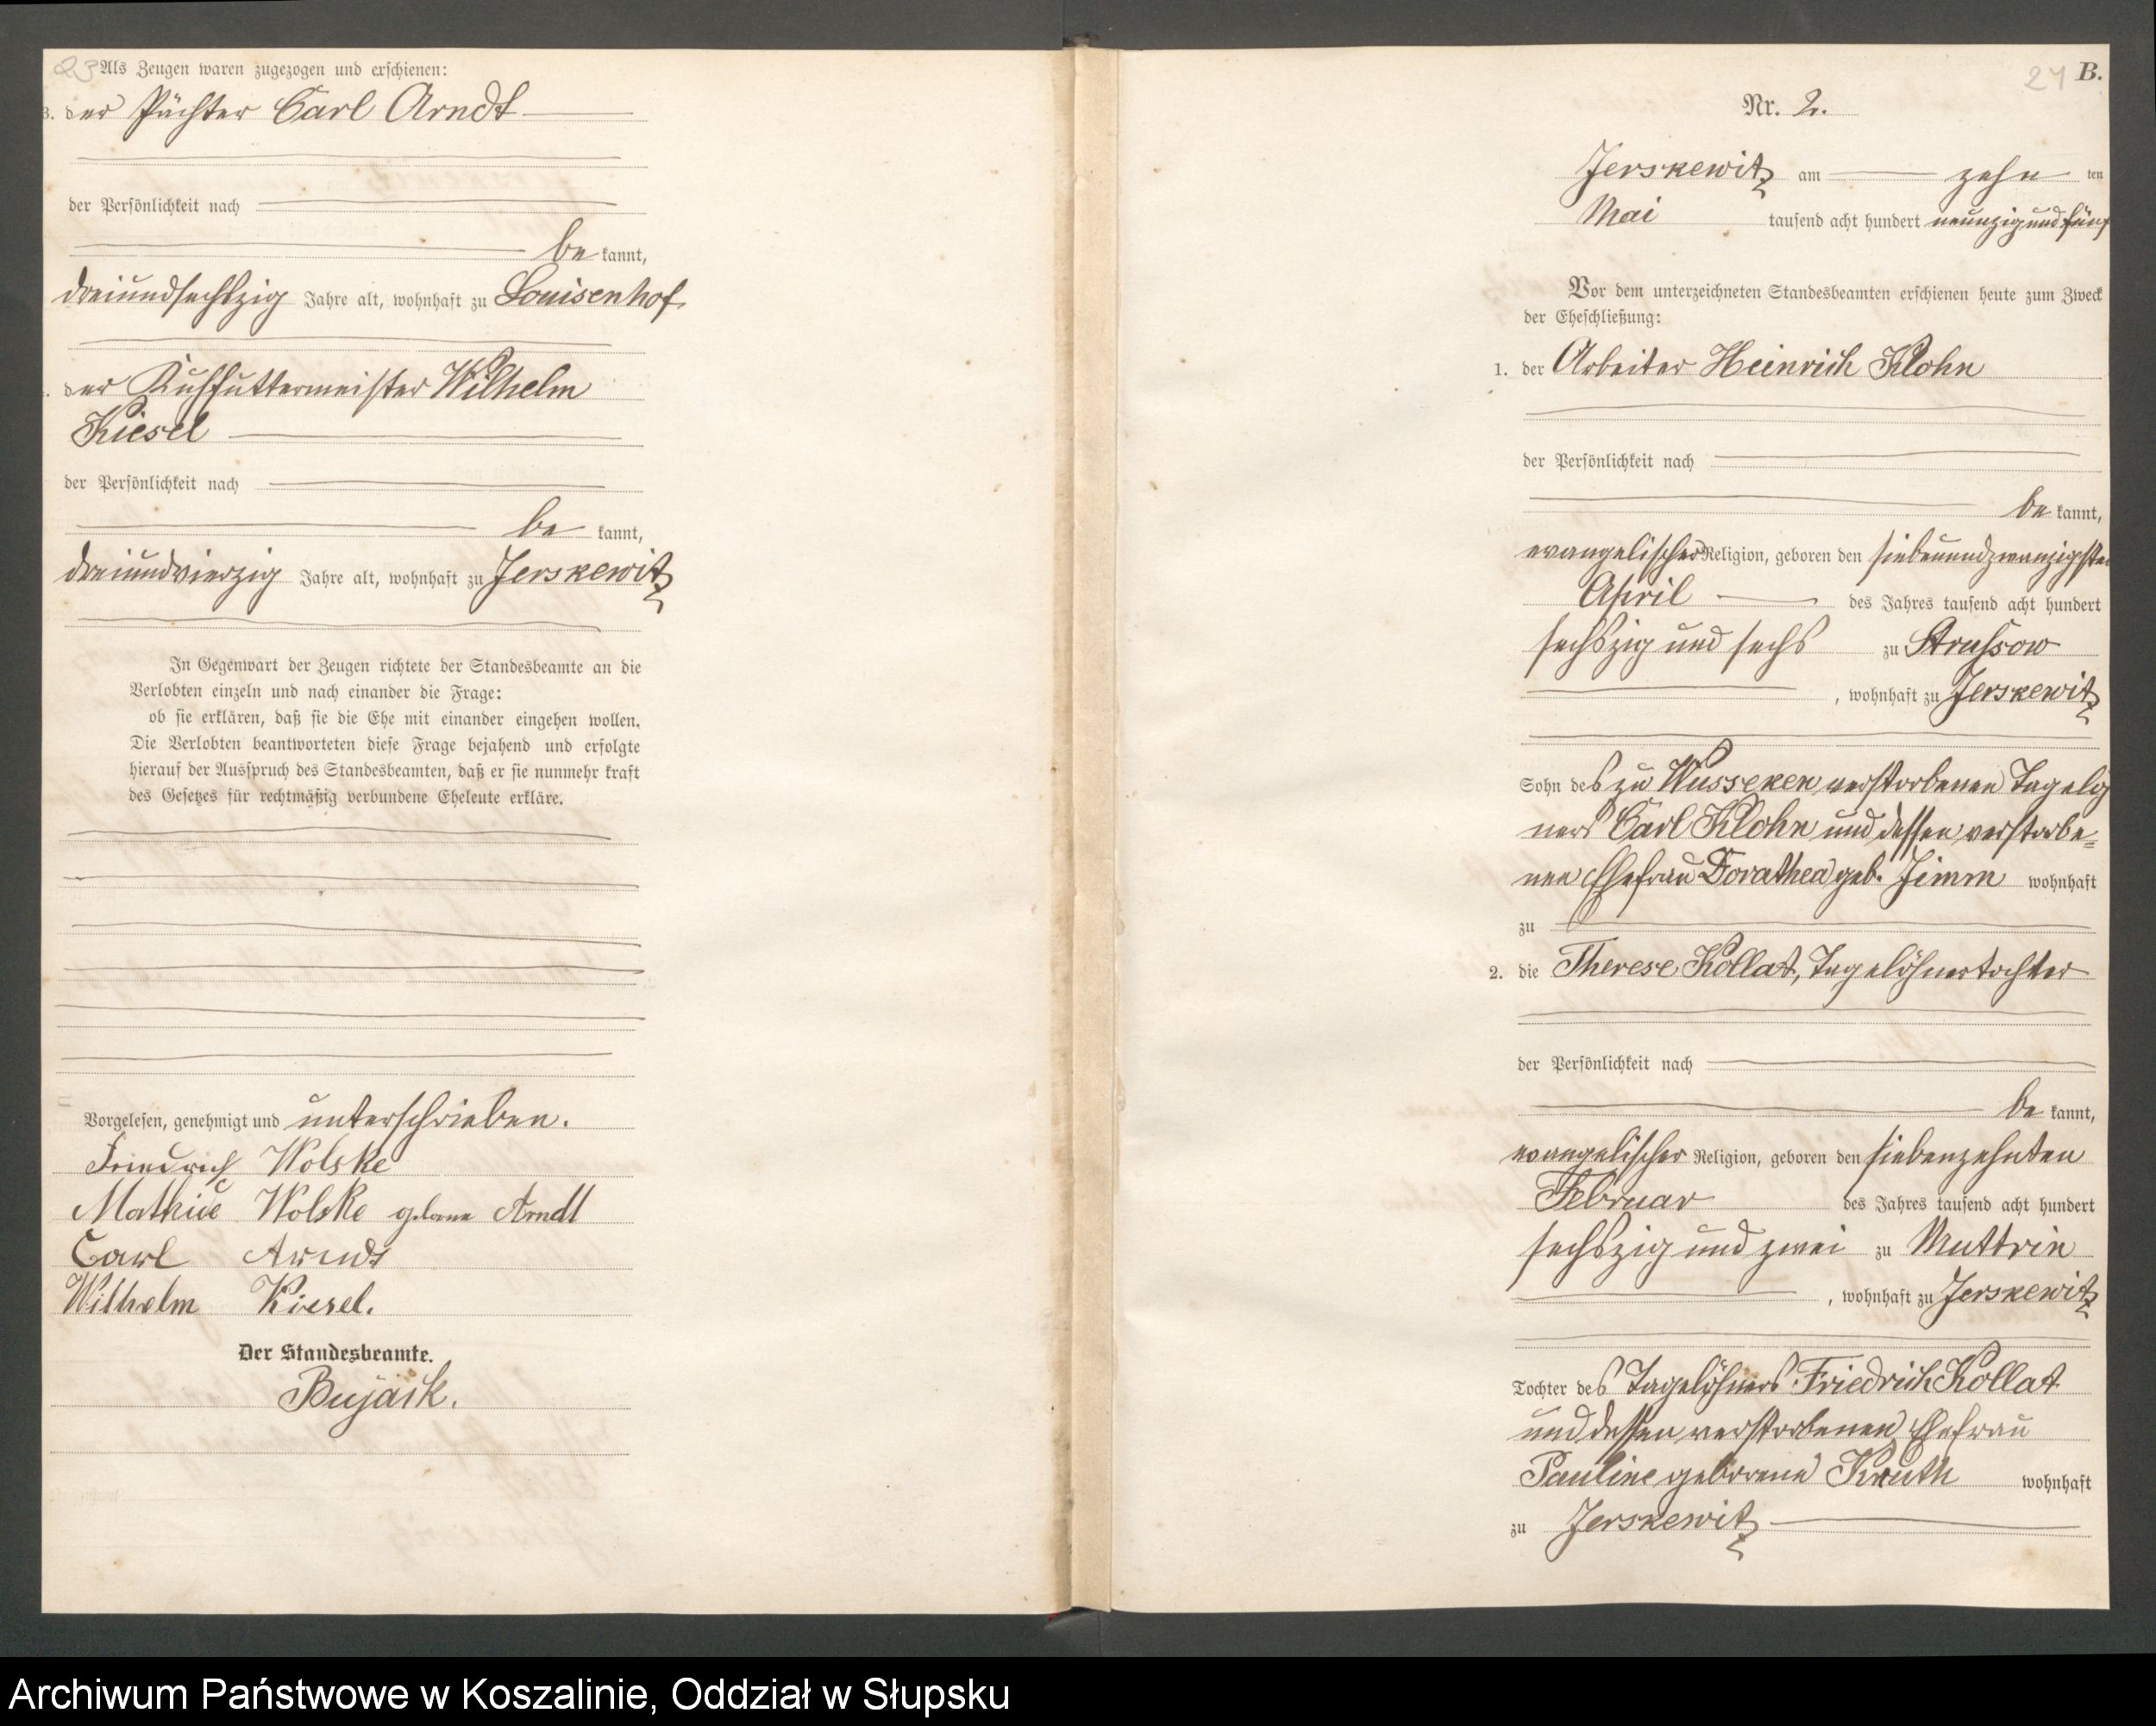 23 Als Zeugen waren zugezogen und erschienen:
3. der Pächter Carl Arndt
der Persönlichkeit nach
be kannt,
dreiundsechszig Jahre alt, wohnhaft zu Louisenhof,
der Kuhfuttermeister Wilhelm
Kiesel
der Persönlichkeit nach
be kannt,
dreiundvierzig Jahre alt, wohnhaft zu Jerskewitz
In Gegenwart der Zeugen richtete der Standesbeamte an die
Verlobten einzeln und nach einander die Frage:
ob sie erklären, daß sie die Ehe mit einander eingehen wollen.
Die Verlobten beantworteten diese Frage bejahend und erfolgte
hierauf der Ausspruch des Standesbeamten, daß er sie nunmehr kraft
des Gesetzes für rechtmäßig verbundene Eheleute erkläre.
Vorgelesen, genehmigt und unterschrieben.
Friedrich Wolske
Mathilde Wolske geborene Arndt
Carl Arndt
Wilhelm Kiesel.
Der Standesbeamte.
Bujack.
24 B.
Nr. 2.
Jerskewitz am zehn ten
Mai tausend acht hundert neunzig und fünf
Vor dem unterzeichneten Standesbeamten erschienen heute zum Zweck
der Eheschließung:
1. der Arbeiter Heinrich Klohn
der Persönlichkeit nach
be kannt,
evangelischer Religion, geboren den siebenundzwanzigsten
April des Jahres tausend acht hundert
sechszig und sechs zu Strussow
, wohnhaft zu Jerskewitz
Sohn des zu Wusseken verstorbenen Tagelö
ners Carl Klohn und dessen verstorbe-
nen Ehefrau Dorathea geb. Jimm wohnhaft
zu
2. die Therese Kollat, Tagelöhnertochter
der Persönlichkeit nach
be kannt,
evangelischer Religion, geboren den siebenzehnten
Februar des Jahres tausend acht hundert
sechszig und zwei zu Muttrin
, wohnhaft zu Jerskewitz
Tochter des Tagelöhners Friedrich Kollat
und dessen verstorbenen Ehefrau
Pauline geborene Kruth wohnhaft
zu Jerskewitz
Archiwum Państwowe w Koszalinie, Oddział w Słupsku